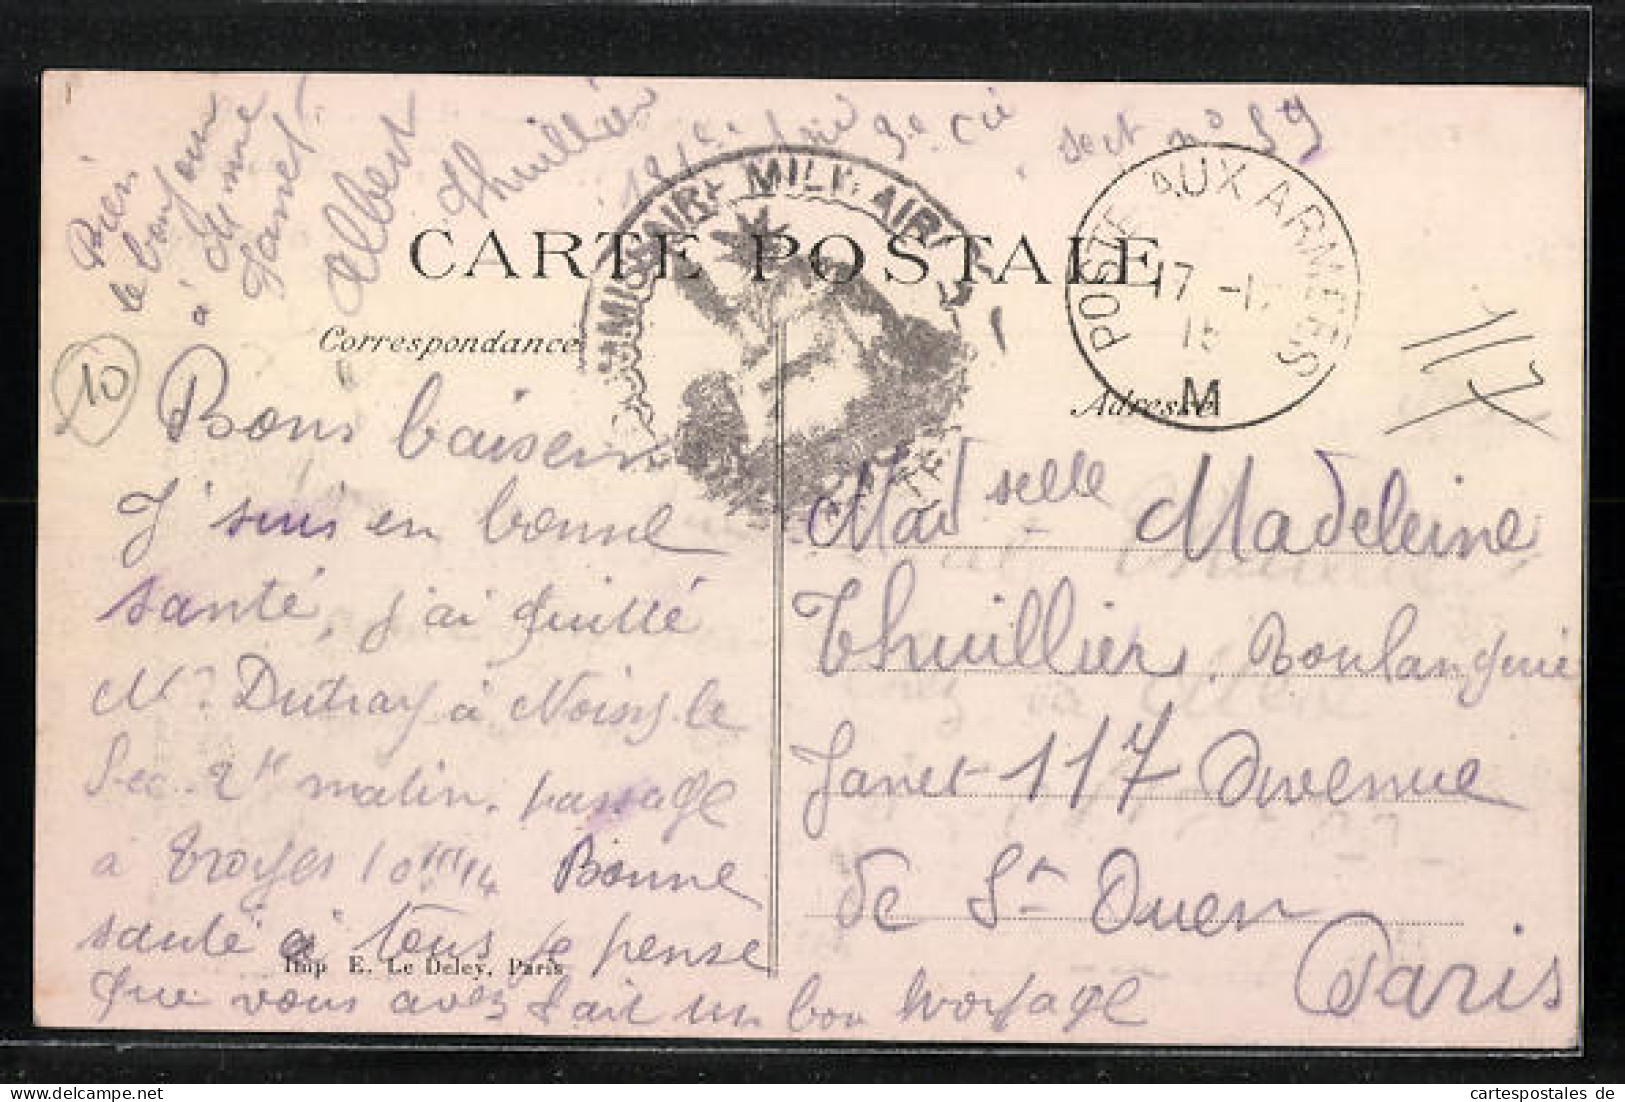 Bien
le bonjour
à Mme
Janet
Albert
Thuillier
9e Cie
sect no 59
CARTE POSTALE
MILITAIRE
POSTE AUX ARMEES
17
15
M
Correspondance
Adresse
10
117
Bons baisers
J'suis en bonne
santé, j'ai quitté
Mr Dutray à Noisy le
Sec. 2h matin. passage
à Troyes 10h 1/4 Bonne
santé à tous je pense
que vous avez fait un bon voyage
Imp E. Le Deley, Paris
Madselle Madeleine
Thuillier, Boulangerie
Janet 117 Avenue
de St Ouen
Paris
cartespostales de